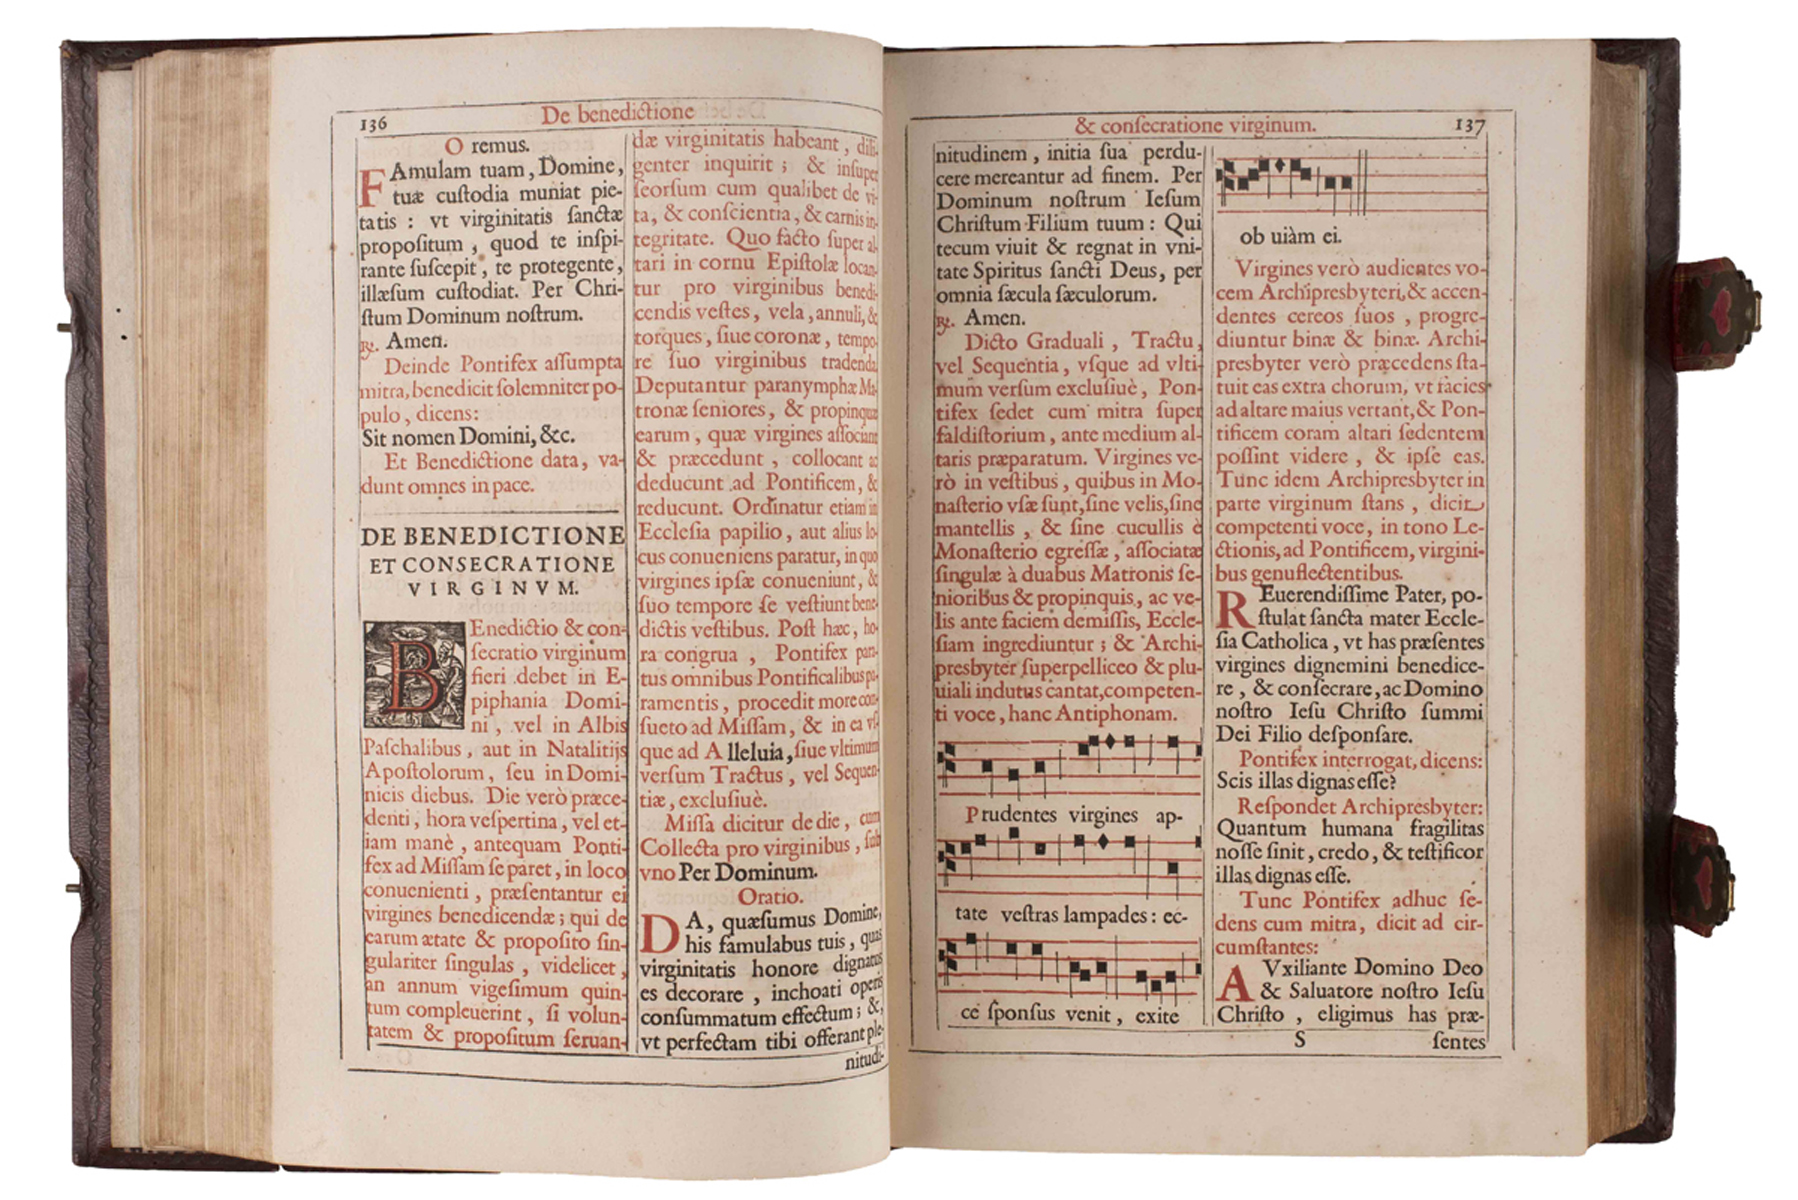 136
De benedictione
O remus.
FAmulam tuam, Domine,
tuæ custodia muniat pie-
tatis : vt virginitatis sanctæ
propositum, quod te inspi-
rante suscepit, te protegente,
illæsum custodiat. Per Chri-
stum Dominum nostrum.
℟. Amen.
Deinde Pontifex assumpta
mitra, benedicit solemniter po-
pulo, dicens:
Sit nomen Domini, &c.
Et Benedictione data, va-
dunt omnes in pace.
DE BENEDICTIONE
ET CONSECRATIONE
VIRGINVM.
BEnedictio & con-
secratio virginum
fieri debet in E-
piphania Domi-
ni, vel in Albis
Paschalibus, aut in Natalitijs
Apostolorum, seu in Domi-
nicis diebus. Die verò præce-
denti, hora vespertina, vel et-
iam manè, antequam Ponti-
fex ad Missam se paret, in loco
conuenienti, præsentantur ei
virgines benedicendæ; qui de
earum ætate & proposito sin-
gulariter singulas, videlicet,
an annum vigesimum quin-
tum compleuerint, si volun-
tatem & propositum seruan-
dæ virginitatis habeant, dili-
genter inquirit; & insuper
seorsum cum qualibet de vi-
ta, & conscientia, & carnis in-
tegritate. Quo facto super al-
tari in cornu Epistolæ locan-
tur pro virginibus benedi-
cendis vestes, vela, annuli, &
torques, siue coronæ, tempo-
re suo virginibus tradenda.
Deputantur paranymphæ Ma-
tronæ seniores, & propinquæ
earum, quæ virgines associant
& præcedunt, collocant ac
deducunt ad Pontificem, &
reducunt. Ordinatur etiam in
Ecclesia papilio, aut alius lo-
cus conueniens paratur, in quo
virgines ipsæ conueniunt, &
suo tempore se vestiunt bene-
dictis vestibus. Post hæc, ho-
ra congrua, Pontifex para-
tus omnibus Pontificalibus pa-
ramentis, procedit more con-
sueto ad Missam, & in ea vs-
que ad Alleluia, siue vltimum
versum Tractus, vel Sequen-
tiæ, exclusiuè.
Missa dicitur de die, cum
Collecta pro virginibus, sub
vno Per Dominum.
Oratio.
DA, quæsumus Domine,
his famulabus tuis, quas
virginitatis honore dignatus
es decorare, inchoati operis
consummatum effectum; &,
vt perfectam tibi offerant ple-
nitudi-
& consecratione virginum.
137
nitudinem, initia sua perdu-
cere mereantur ad finem. Per
Dominum nostrum Iesum
Christum Filium tuum : Qui
tecum viuit & regnat in vni-
tate Spiritus sancti Deus, per
omnia sæcula sæculorum.
℟. Amen.
Dicto Graduali, Tractu,
vel Sequentia, vsque ad vlti-
mum versum exclusiuè, Pon-
tifex sedet cum mitra super
faldistorium, ante medium al-
taris præparatum. Virgines ve-
rò in vestibus, quibus in Mo-
nasterio vsæ sunt, sine velis, sine
mantellis, & sine cucullis è
Monasterio egressæ, associatæ
singulæ à duabus Matronis se-
nioribus & propinquis, ac ve-
lis ante faciem demissis, Eccle-
siam ingrediuntur; & Archi-
presbyter superpelliceo & plu-
uiali indutus cantat, competen-
ti voce, hanc Antiphonam.
Prudentes virgines ap-
tate vestras lampades : ec-
ce sponsus venit, exite
ob uiàm ei.
Virgines verò audientes vo-
cem Archipresbyteri, & accen-
dentes cereos suos, progre-
diuntur binæ & binæ. Archi-
presbyter verò præcedens sta-
tuit eas extra chorum, vt facies
ad altare maius vertant, & Pon-
tificem coram altari sedentem
possint videre, & ipse eas.
Tunc idem Archipresbyter in
parte virginum stans, dicit
competenti voce, in tono Le-
ctionis, ad Pontificem, virgini-
bus genuflectentibus.
REuerendissime Pater, po-
stulat sancta mater Eccle-
sia Catholica, vt has præsentes
virgines dignemini benedice-
re, & consecrare, ac Domino
nostro Iesu Christo summi
Dei Filio desponsare.
Pontifex interrogat, dicens:
Scis illas dignas esse?
Respondet Archipresbyter:
Quantum humana fragilitas
nosse sinit, credo, & testificor
illas dignas esse.
Tunc Pontifex adhuc se-
dens cum mitra, dicit ad cir-
cumstantes:
AVxiliante Domino Deo
& Saluatore nostro Iesu
Christo, eligimus has præ-
S
sentes